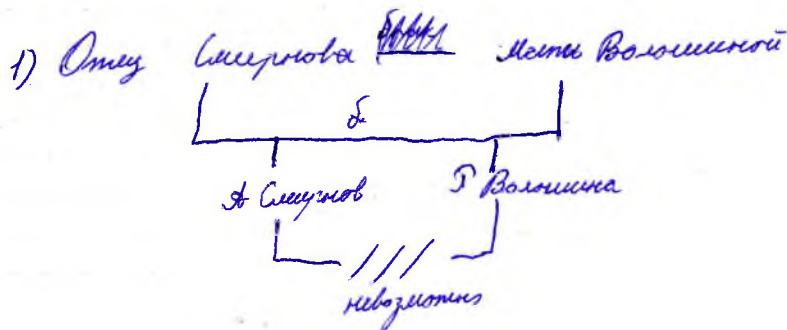 1) Отец Смирнова Мать Волошиной
б.
А Смирнов Т Волошина
невозможно